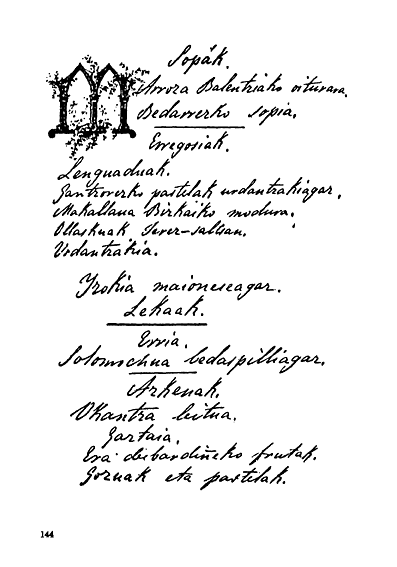 Sopák.
Arroza Balentziako oiturara.
Bedarrezko sopia.
Erregosiak.
Lenguaduak.
Gantzorezko pastelak urdantzakiagaz.
Makallaua Bizkaiko modura.
Ollaskuak Jerez-saltsan.
Urdantzakia.
Izokia maioneseagaz.
Lekaak.
Erria.
Solomochua bedaspilliagaz.
Azkenak.
Okantza beitua.
Gaztaia.
Era desbardiñeko frutak.
Gozuak eta pastelak.
144